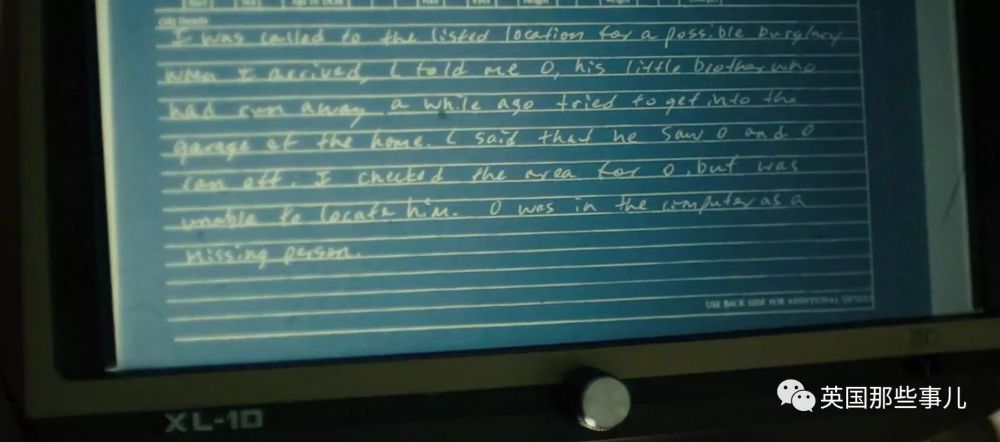 (16) Details
I was called to the listed location for a possible burglary
when I arrived, L told me O, his little brother who
had run away a while ago tried to get into the
garage of the home. L said that he saw O and O
ran off. I checked the area for O, but was
unable to locate him. O was in the computer as a
missing person.
USE BACK SIDE FOR ADDITIONAL DETAILS
XL-10
英国那些事儿